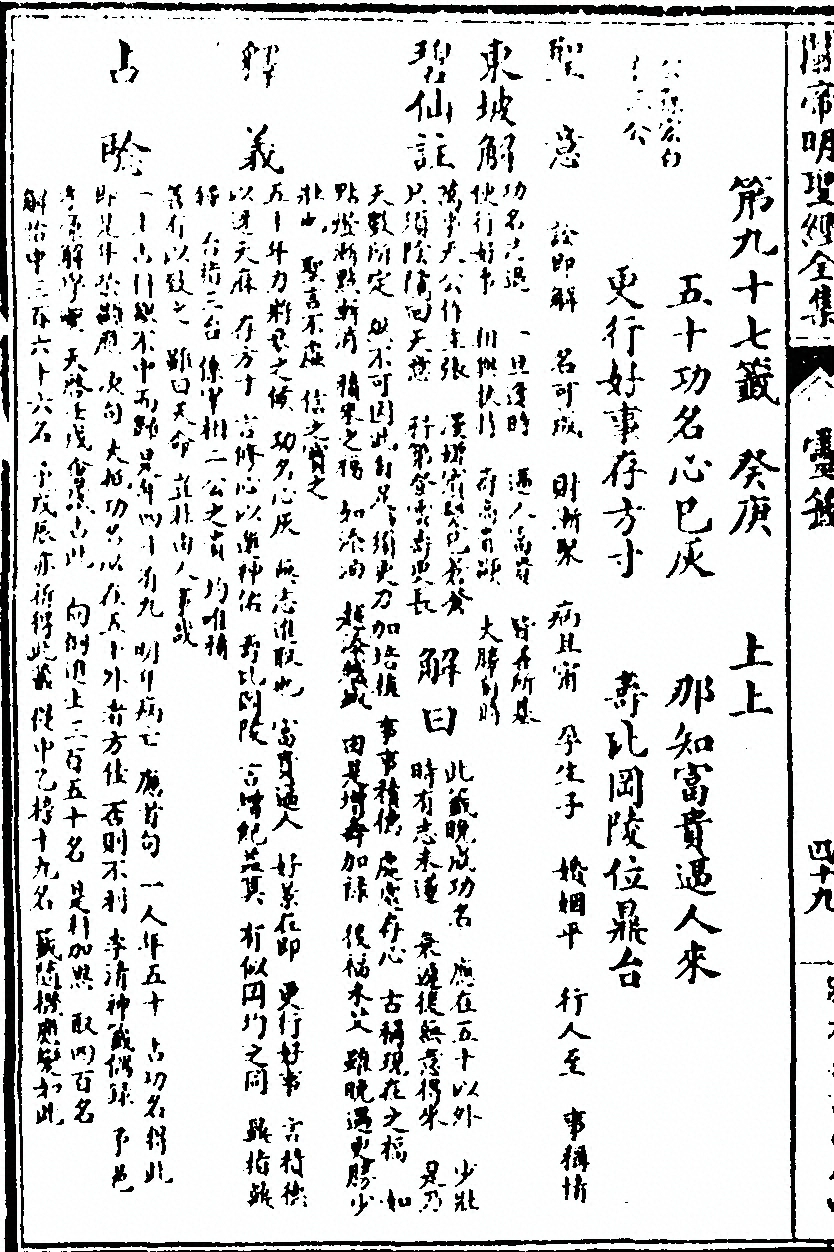 關帝明聖經全集
靈籤
四十九
第九十七籤 癸庚 上上
五十功名心已灰 那知富貴逼人來
更行好事存方寸 壽比岡陵位鼎台
聖意
訟即解 名可成 財漸聚 病且甯 孕生子 婚姻平 行人至 事稱情
東坡解
功名志退 一旦逢時 逼人富貴 皆有所基
使行好事 相與扶持 壽高官顯 大勝別時
碧仙註
萬事天公作主張 漫嗟宿髮已蒼蒼
只須陰騭回天意 科第登雲壽更長
解曰
此籤晚成功名 應在五十以外 少壯
時有志未逢 衰遲後無意得來 是乃
天數所定 然不可因此自足 須更力加培植 事事積德 處處存心 古稱現在之福 如
點燈漸點漸消 積來之福 如添油 越添越盛 由是增壽加祿 後福未艾 雖晚遇更勝少
壯也 聖言不虛 信之寶之
釋義
五十年力將衰之候 功名心灰 無志進取也 富貴逼人 好景在即 更行好事 言積德
以迓天庥 存方寸 言修心以邀神佑 壽比岡陵 言增紀益算 有似岡陵之同
台指三台 係宰相三公之貴 均唯積
善有以致之 雖曰天命 豈非由人事哉
占驗
一士占科
不中
年四十有九 明年病亡 應首句 一人年五十 占功名得此
即是年
次句 大抵功名以在五十外者方佳 否則不利 李清神籤偶錄 予邑
天啓壬戌
占此 向例進士三百五十名 是科加恩 取四百名
解始中三百六十六名 予戊辰亦祈得此籤 從中乙榜十九名 籤隨機應變如此